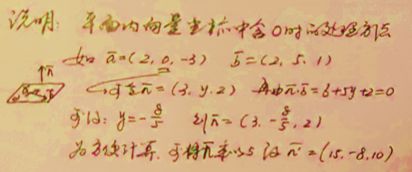 说明: 平面内向量坐标中含0时的处理方法
如 a=(2,0,-3) b=(2,5,1)
可令n=(3,y,2) 再由n·b=6+5y+2=0
可得: y=-8/5 则n=(3,-8/5,2)
为方便计算,可将n乘以5 得n=(15,-8,10)
n